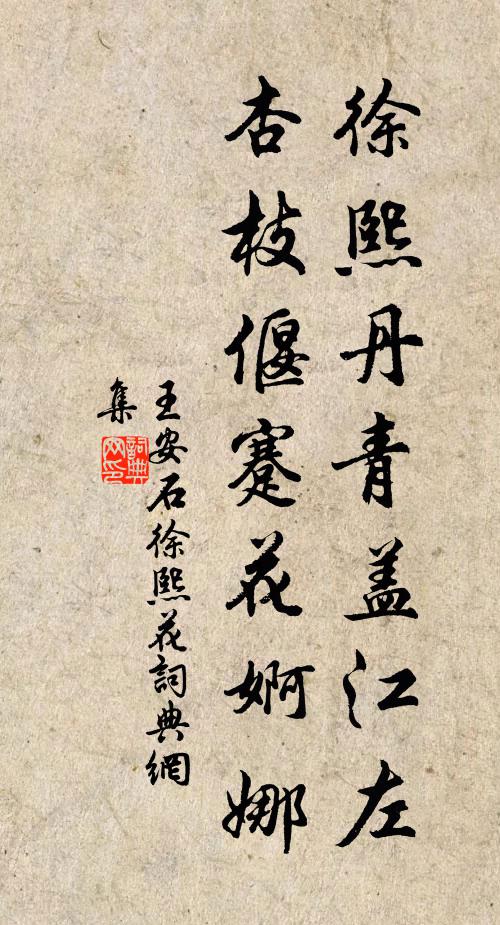 徐熙丹青盖江左
杏枝偃蹇花婀娜
王安石徐熙花詞典網
集
詞典
网印